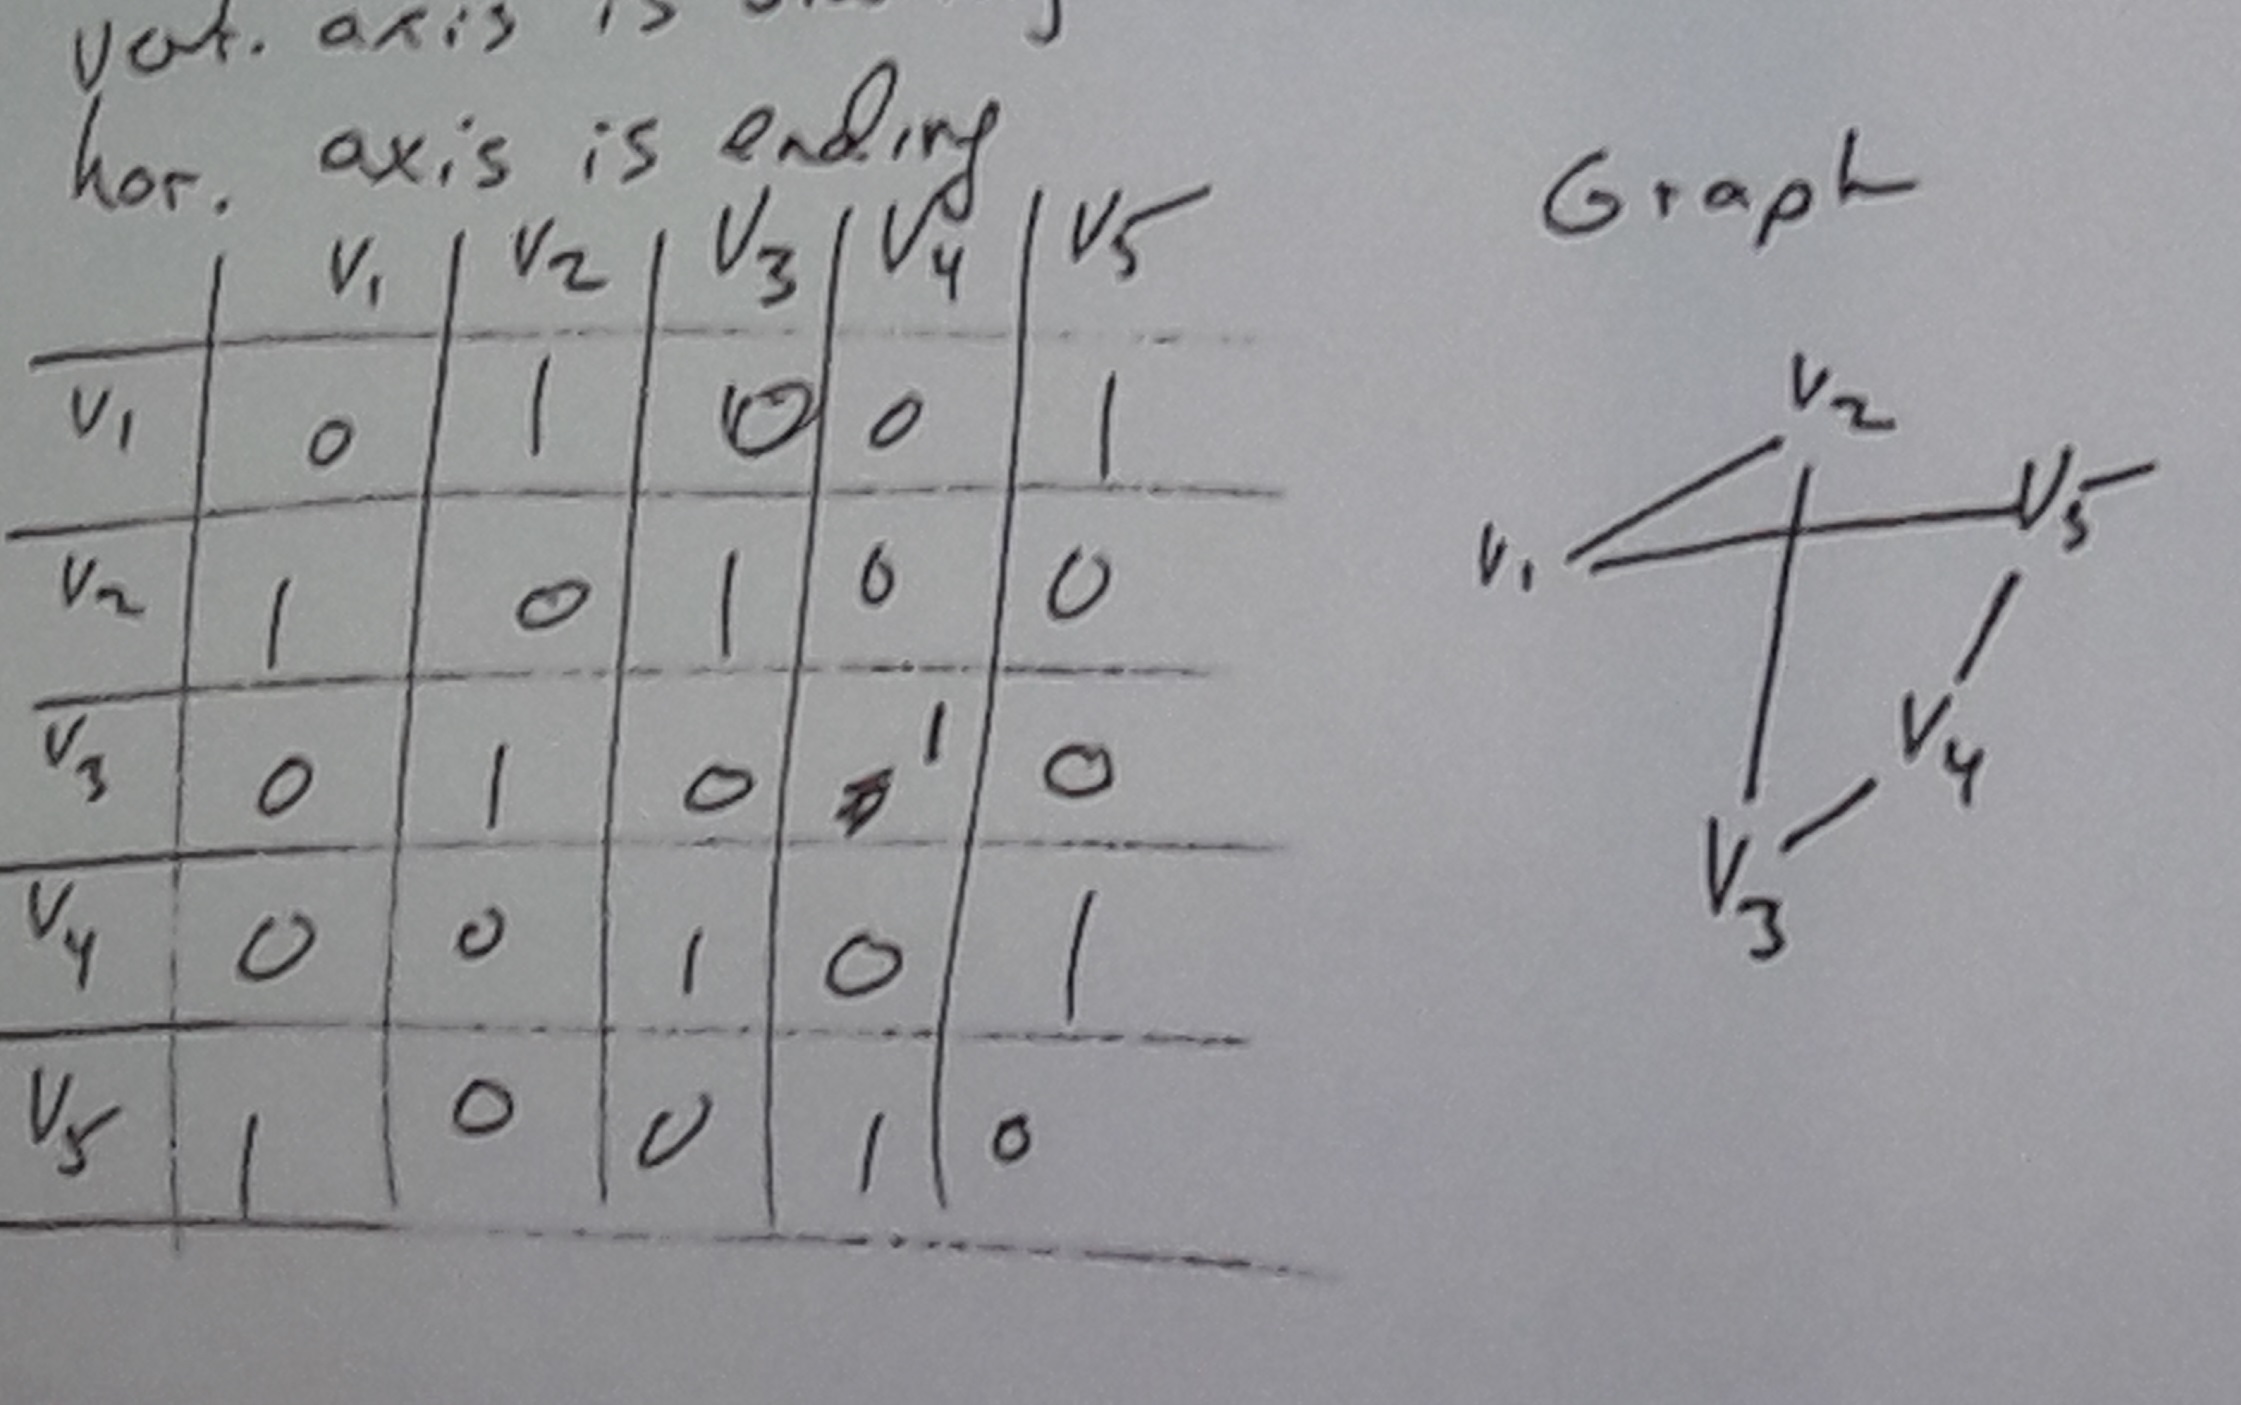 vert. axis is
hor. axis is ending
V1 V2 V3 V4 V5
V1 0 1 0 0 1
V2 1 0 1 0 0
V3 0 1 0 1 0
V4 0 0 1 0 1
V5 1 0 0 1 0
Graph
V2
V5
V1
V4
V3